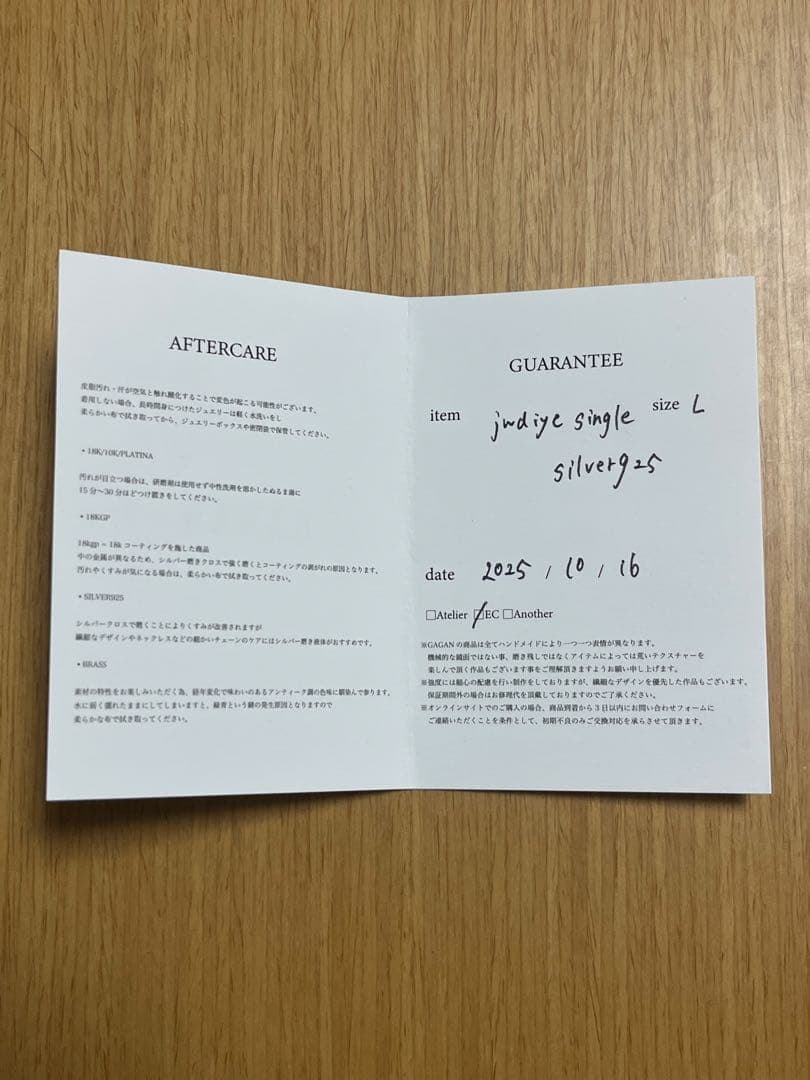 AFTERCARE
皮脂汚れ・汗が空気と触れ酸化することで変色が起こる可能性がございます、
着用しない場合、長時間身につけたジュエリーは軽く水洗いをし
柔らかい布で拭き取ってから、ジュエリーボックスや密閉袋で保管してください。
・18K/10K/PLATINA
汚れが目立つ場合は、研磨剤は使用せず中性洗剤を溶かしたぬるま湯に
15分〜30分ほどつけ置きをしてください。
・18KGP
18kgp = 18k コーティングを施した商品
中の金属が異なるため、シルバー磨きクロスで強く磨くとコーティングの剥がれの原因となります。
汚れやくすみが気になる場合は、柔らかい布で拭き取ってください。
・SILVER925
シルバークロスで磨くことによりくすみが改善されますが
繊細なデザインやネックレスなどの細かいチェーンのケアにはシルバー磨き液体がおすすめです。
・BRASS
素材の特性をお楽しみいただく為、経年変化で味わいのあるアンティーク調の色味に馴染んで参ります。
水に弱く濡れたままにしてしまいますと、緑青という錆の発生原因となりますので
柔らかな布で拭き取ってください。
GUARANTEE
item jwdiye single size L
silver925
date 2025 / 10 / 16
□Atelier ☑EC □Another
※GAGANの商品は全てハンドメイドにより一つ一つ表情が異なります。
機械的な鏡面ではない事、磨き残しではなくアイテムによっては荒いテクスチャーを
楽しんで頂く作品もございます事をご理解頂きますようお願い申し上げます。
※強度には細心の配慮を行い制作をしておりますが、繊細なデザインを優先した作品もございます。
保証期間外の場合はお修理代を頂戴しておりますのでご了承ください。
※オンラインサイトでのご購入の場合、商品到着から3日以内にお問い合わせフォームに
ご連絡いただくことを条件として、初期不良のみご交換対応を承らさせて頂きます。